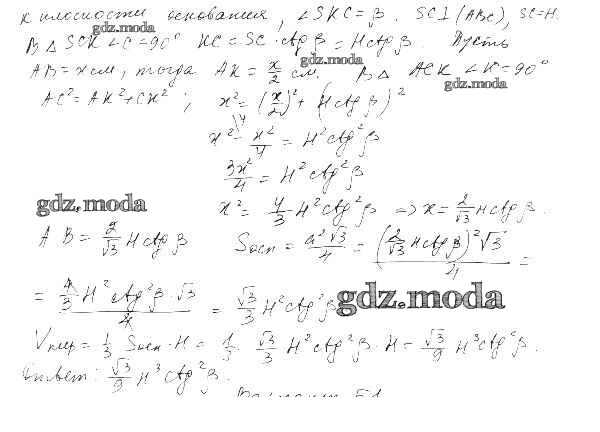 к плоскости основания, ∠SKC = β. SC⊥(ABC), SC=H.
gdz.moda
В △ SCK ∠C=90° KC = SC · ctg β = H ctg β. Пусть
gdz.moda
AB = x см, тогда AK = x/2 см. В △ ACK ∠K=90°
gdz.moda
AC² = AK² + CK² ; x² = (x/2)² + (H ctg β)²
x² - x²/4 = H² ctg² β
3x²/4 = H² ctg² β
gdz.moda
x² = 4/3 H² ctg² β => x = 2/√3 H ctg β.
AB = 2/√3 H ctg β Sосн = a²√3/4 = (2/√3 H ctg β)² √3/4 =
= 4/3 H² ctg² β · √3/4 = √3/3 H² ctg² β
gdz.moda
Vпир = 1/3 Sосн · H = 1/3 · √3/3 H² ctg² β · H = √3/9 H³ ctg² β.
Ответ: √3/9 H³ ctg² β.